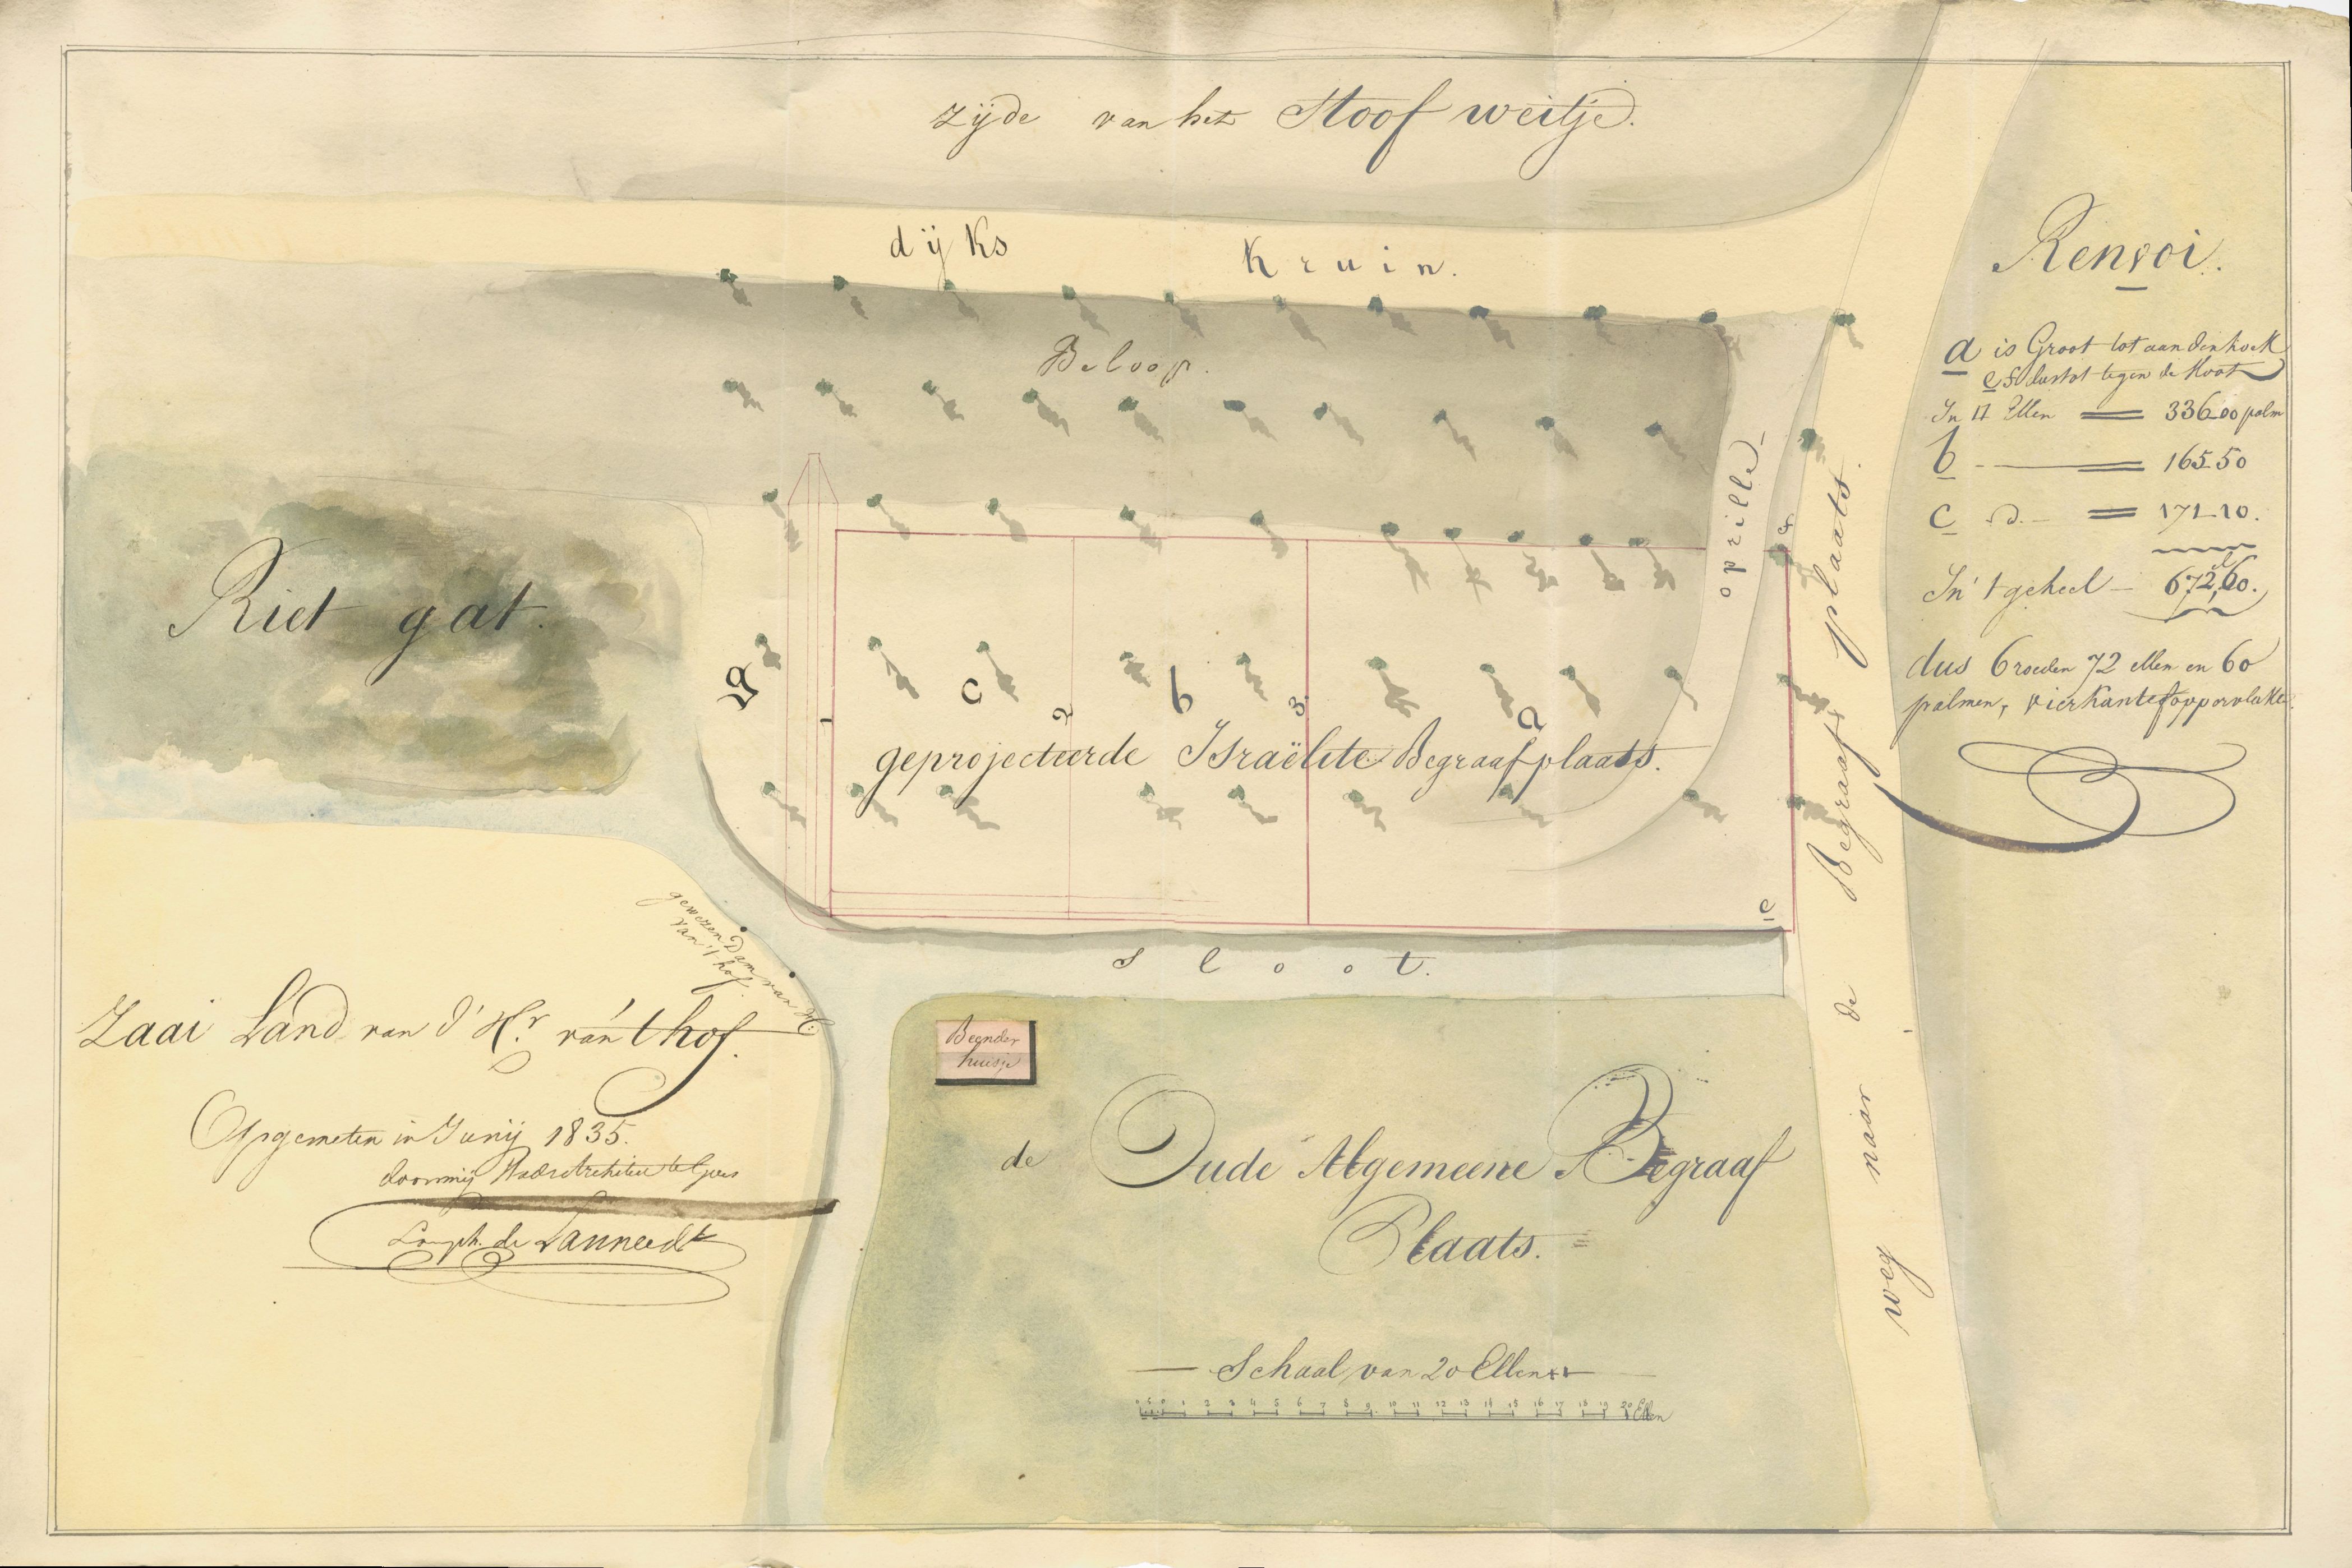 zijde van het Stoof weitje.
dijks Kruin.
Renvoi.
Beloop.
a is Groot tot aan den hoek
e f dus tot tegen de sloot
In □ Ellen = 336.00 palm
b - = 165.50
c d. - = 171.10.
In't geheel - 672,60.
dus 6 roeden 72 ellen en 60
palmen, vierkante oppervlakte.
oprille
f
Riet gat.
c
b
a
1
2
3
geprojecteerde Israëlite Begraafplaats.
e
Sloot.
weg naar de Begraaf plaats.
gewezen Dam van H.
van 't hof.
Zaai Land van d' Hr. van 't hof.
Opgemeten in Junij 1835.
door mij Stads Architect te Goes
de Lannecdt
Beender
huisje
de Oude Algemeene Begraaf
Plaats.
Schaal van 20 Ellen
0 1 2 3 4 5 6 7 8 9 10 11 12 13 14 15 16 17 18 19 20 Ellen